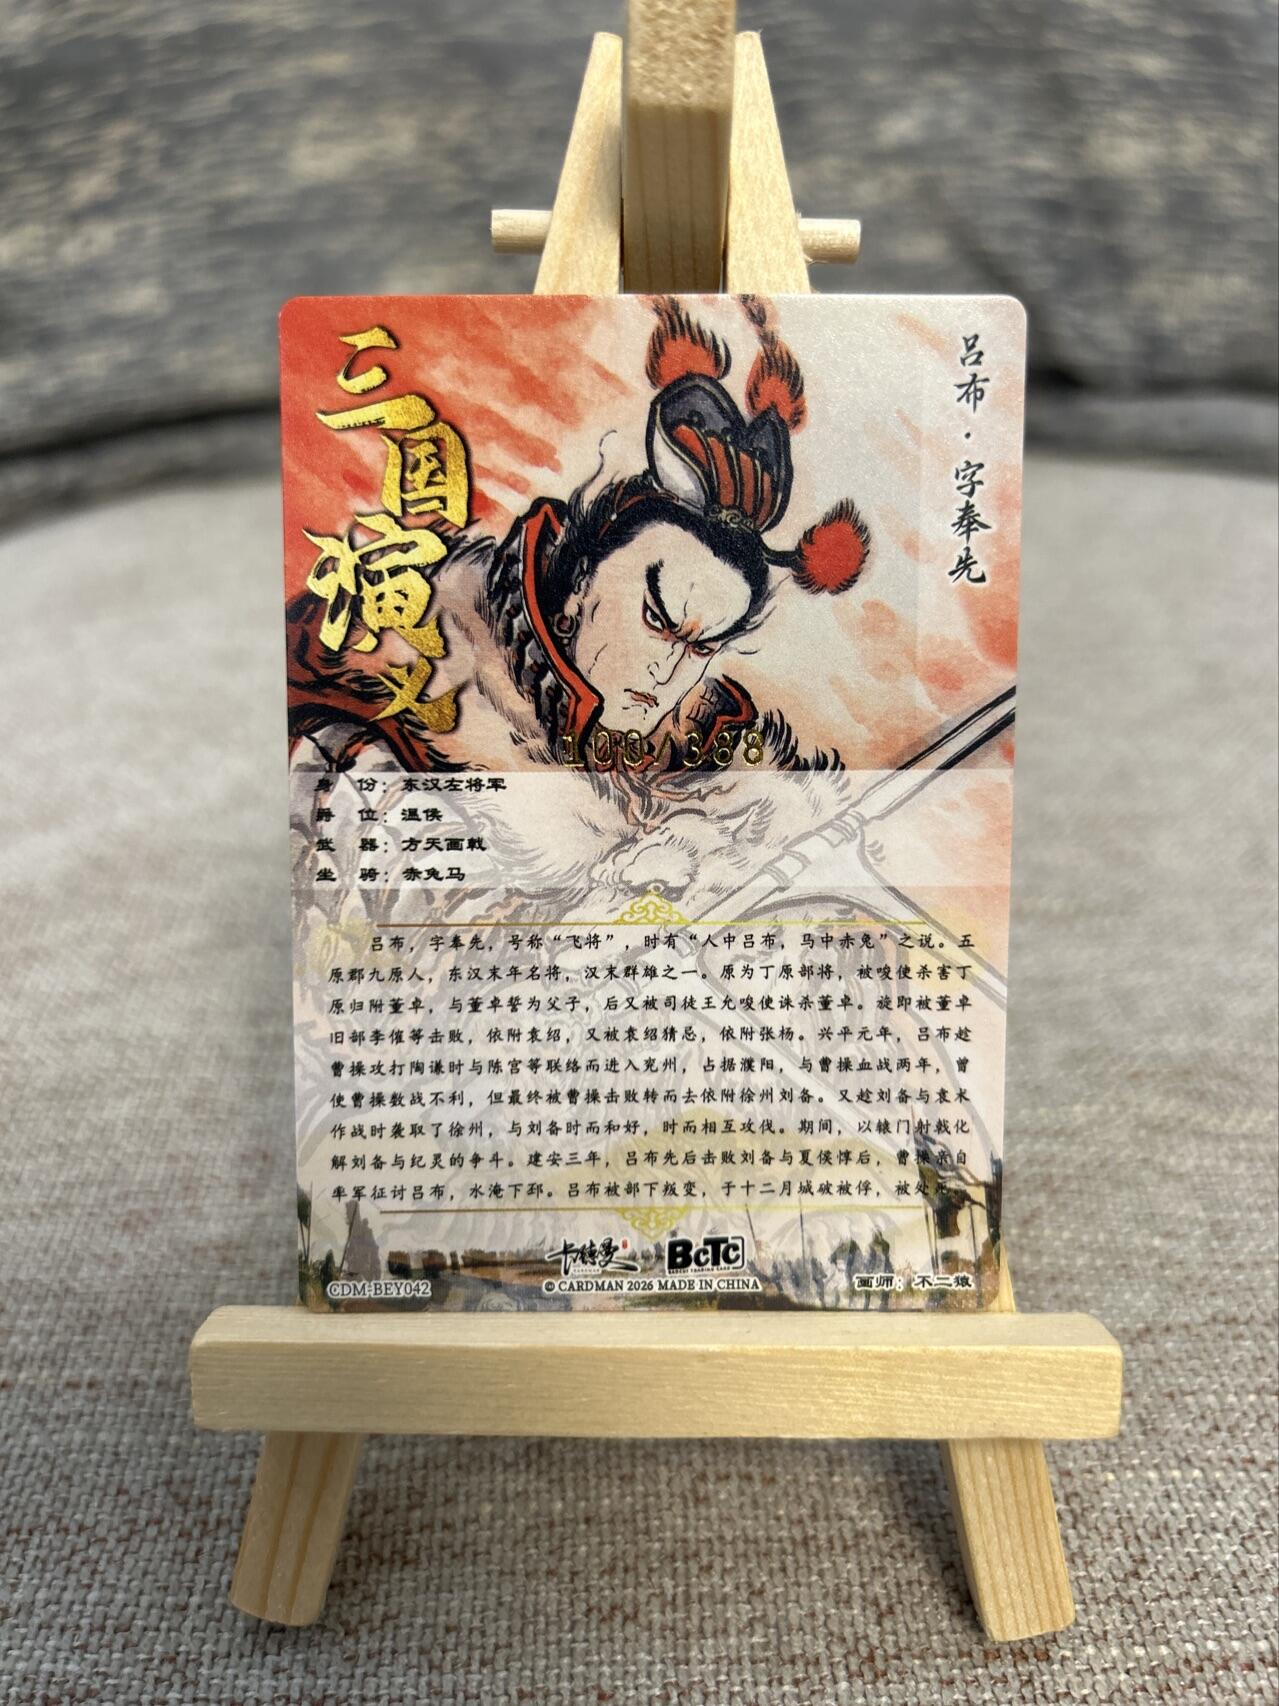 三国演义
吕布·字奉先
100/388
身 份：东汉左将军
爵 位：温侯
武 器：方天画戟
坐 骑：赤兔马
吕布，字奉先，号称“飞将”，时有“人中吕布，马中赤兔”之说。五
原郡九原人，东汉末年名将，汉末群雄之一。原为丁原部将，被唆使杀害丁
原归附董卓，与董卓誓为父子，后又被司徒王允唆使诛杀董卓。旋即被董卓
旧部李傕等击败，依附袁绍，又被袁绍猜忌，依附张杨。兴平元年，吕布趁
曹操攻打陶谦时与陈宫等联络而进入兖州，占据濮阳，与曹操血战两年，曾
使曹操数战不利，但最终被曹操击败转而去依附徐州刘备。又趁刘备与袁术
作战时袭取了徐州，与刘备时而和好，时而相互攻伐。期间，以辕门射戟化
解刘备与纪灵的争斗。建安三年，吕布先后击败刘备与夏侯惇后，曹操亲自
率军征讨吕布，水淹下邳。吕布被部下叛变，于十二月城破被俘，被处死。
卡德曼 BCTC
CDM-BEY042
© CARDMAN 2026 MADE IN CHINA
画师：不二狼